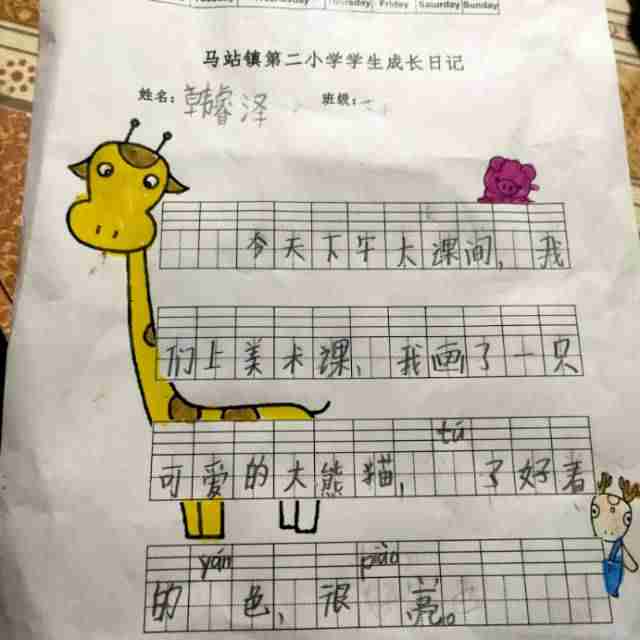 Tuesday Wednesday Thursday Friday Saturday Sunday
马站镇第二小学学生成长日记
姓名：韩睿泽 班级：
今天下午大课间，我
们上美术课，我画了一只
tú
可爱的大熊猫， 了好着
yán piào
的 色，很 亮。